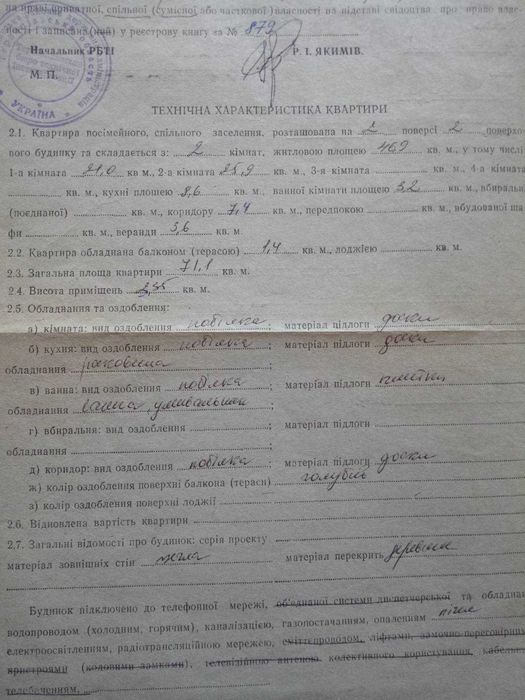 на праві приватної, спільної (сумісної або часткової) власності на підставі свідоцтва про право влас-
ності і записана (ний) у реєстрову книгу за № 879
Начальник РБТІ Р. І. ЯКИМІВ.
М. П.
УКРАЇНА
ТЕХНІЧНА ХАРАКТЕРИСТИКА КВАРТИРИ
2.1. Квартира посімейного, спільного заселення, розташована на 2 поверсі 2 поверхо-
вого будинку та складається з: 2 кімнат, житловою площею 46,9 кв. м., у тому числі
1-а кімната 21,0 кв м., 2-а кімната 25,9 кв. м., 3-я кімната кв. м., 4-а кімната
кв. м., кухні площею 8,6 кв. м., ванної кімнати площею 3,2 кв. м., вбиральн
(поєднаної) кв. м., коридору 7,4 кв. м., передпокою кв. м., вбудованої ша
фи кв. м., веранди 3,6 кв. м.
2.2. Квартира обладнана балконом (терасою) 1,4 кв. м., лоджією кв. м.
2.3. Загальна площа квартири 71,1 кв. м.
2.4. Висота приміщень кв. м.
2.5. Обладнання та оздоблення:
а) кімната: вид оздоблення побілка; матеріал підлоги доски
б) кухня: вид оздоблення побілка; матеріал підлоги доски
обладнання раковина
в) ванна: вид оздоблення побілка матеріал підлоги плитки
обладнання ванна, умивальник
г) вбиральня: вид оздоблення; матеріал підлоги
обладнання
д) коридор: вид оздоблення побілка; матеріал підлоги доски
ж) колір оздоблення поверхні балкона (тераси) голубий
з) колір оздоблення поверхні лоджії
2.6. Відновлена вартість квартири
2.7. Загальні відомості про будинок: серія проекту
матеріал зовнішніх стін цегла матеріал перекрить деревяне
Будинок підключено до телефонної мережі, об'єднаної системи диспетчерської та обладнан
водопроводом (холодним, горячим), каналізацією, газопостачанням, опаленням пічне
електроосвітленням, радіотрансляційною мережею, сміттєпроводом, ліфтами, замочно-переговорним
пристроями (кодовими замками), телевізійною антеною колективного користування, кабельн
телебаченням,